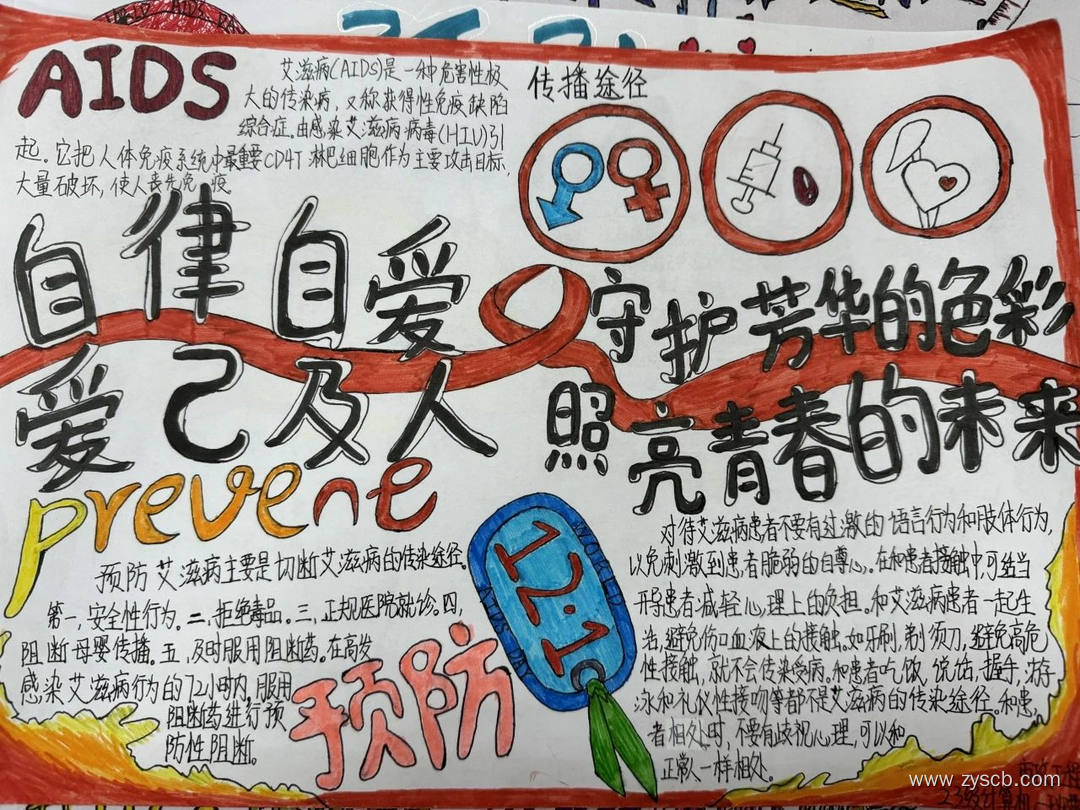 AIDS
艾滋病(AIDS)是一种危害性极
大的传染病,又称获得性免疫缺陷
综合症.由感染艾滋病病毒(HIV)引
起。它把人体免疫系统中最重要CD4T淋巴细胞作为主要攻击目标,
大量破坏,使人丧失免疫
传播途径
自律自爱
爱己及人
守护芳华的色彩
照亮青春的未来
prevene
预防艾滋病主要是切断艾滋病的传染途径.
第一,安全性行为.二,拒绝毒品。三,正规医院就诊。四,
阻断母婴传播。五,及时服用阻断药。在高发
感染艾滋病行为的72小时内,服用
阻断药进行预
防性阻断。
预防
WORLED
12.1
AIDS DAY
对待艾滋病患者不要有过激的语言行为和肢体行为,
以免刺激到患者脆弱的自尊心。在和患者接触中,可适当
开导患者,减轻心理上的负担。和艾滋病患者一起生
活,避免伤口血液上的接触.如牙刷,剃须刀,避免高危
性接触,就不会传染受病.和患者吃饭,说话,握手,游
泳和礼仪性接吻等都不是艾滋病的传染途径.和患
者相处时,不要有歧视心理,可以和
正常人一样相处。
www.zyscb.com